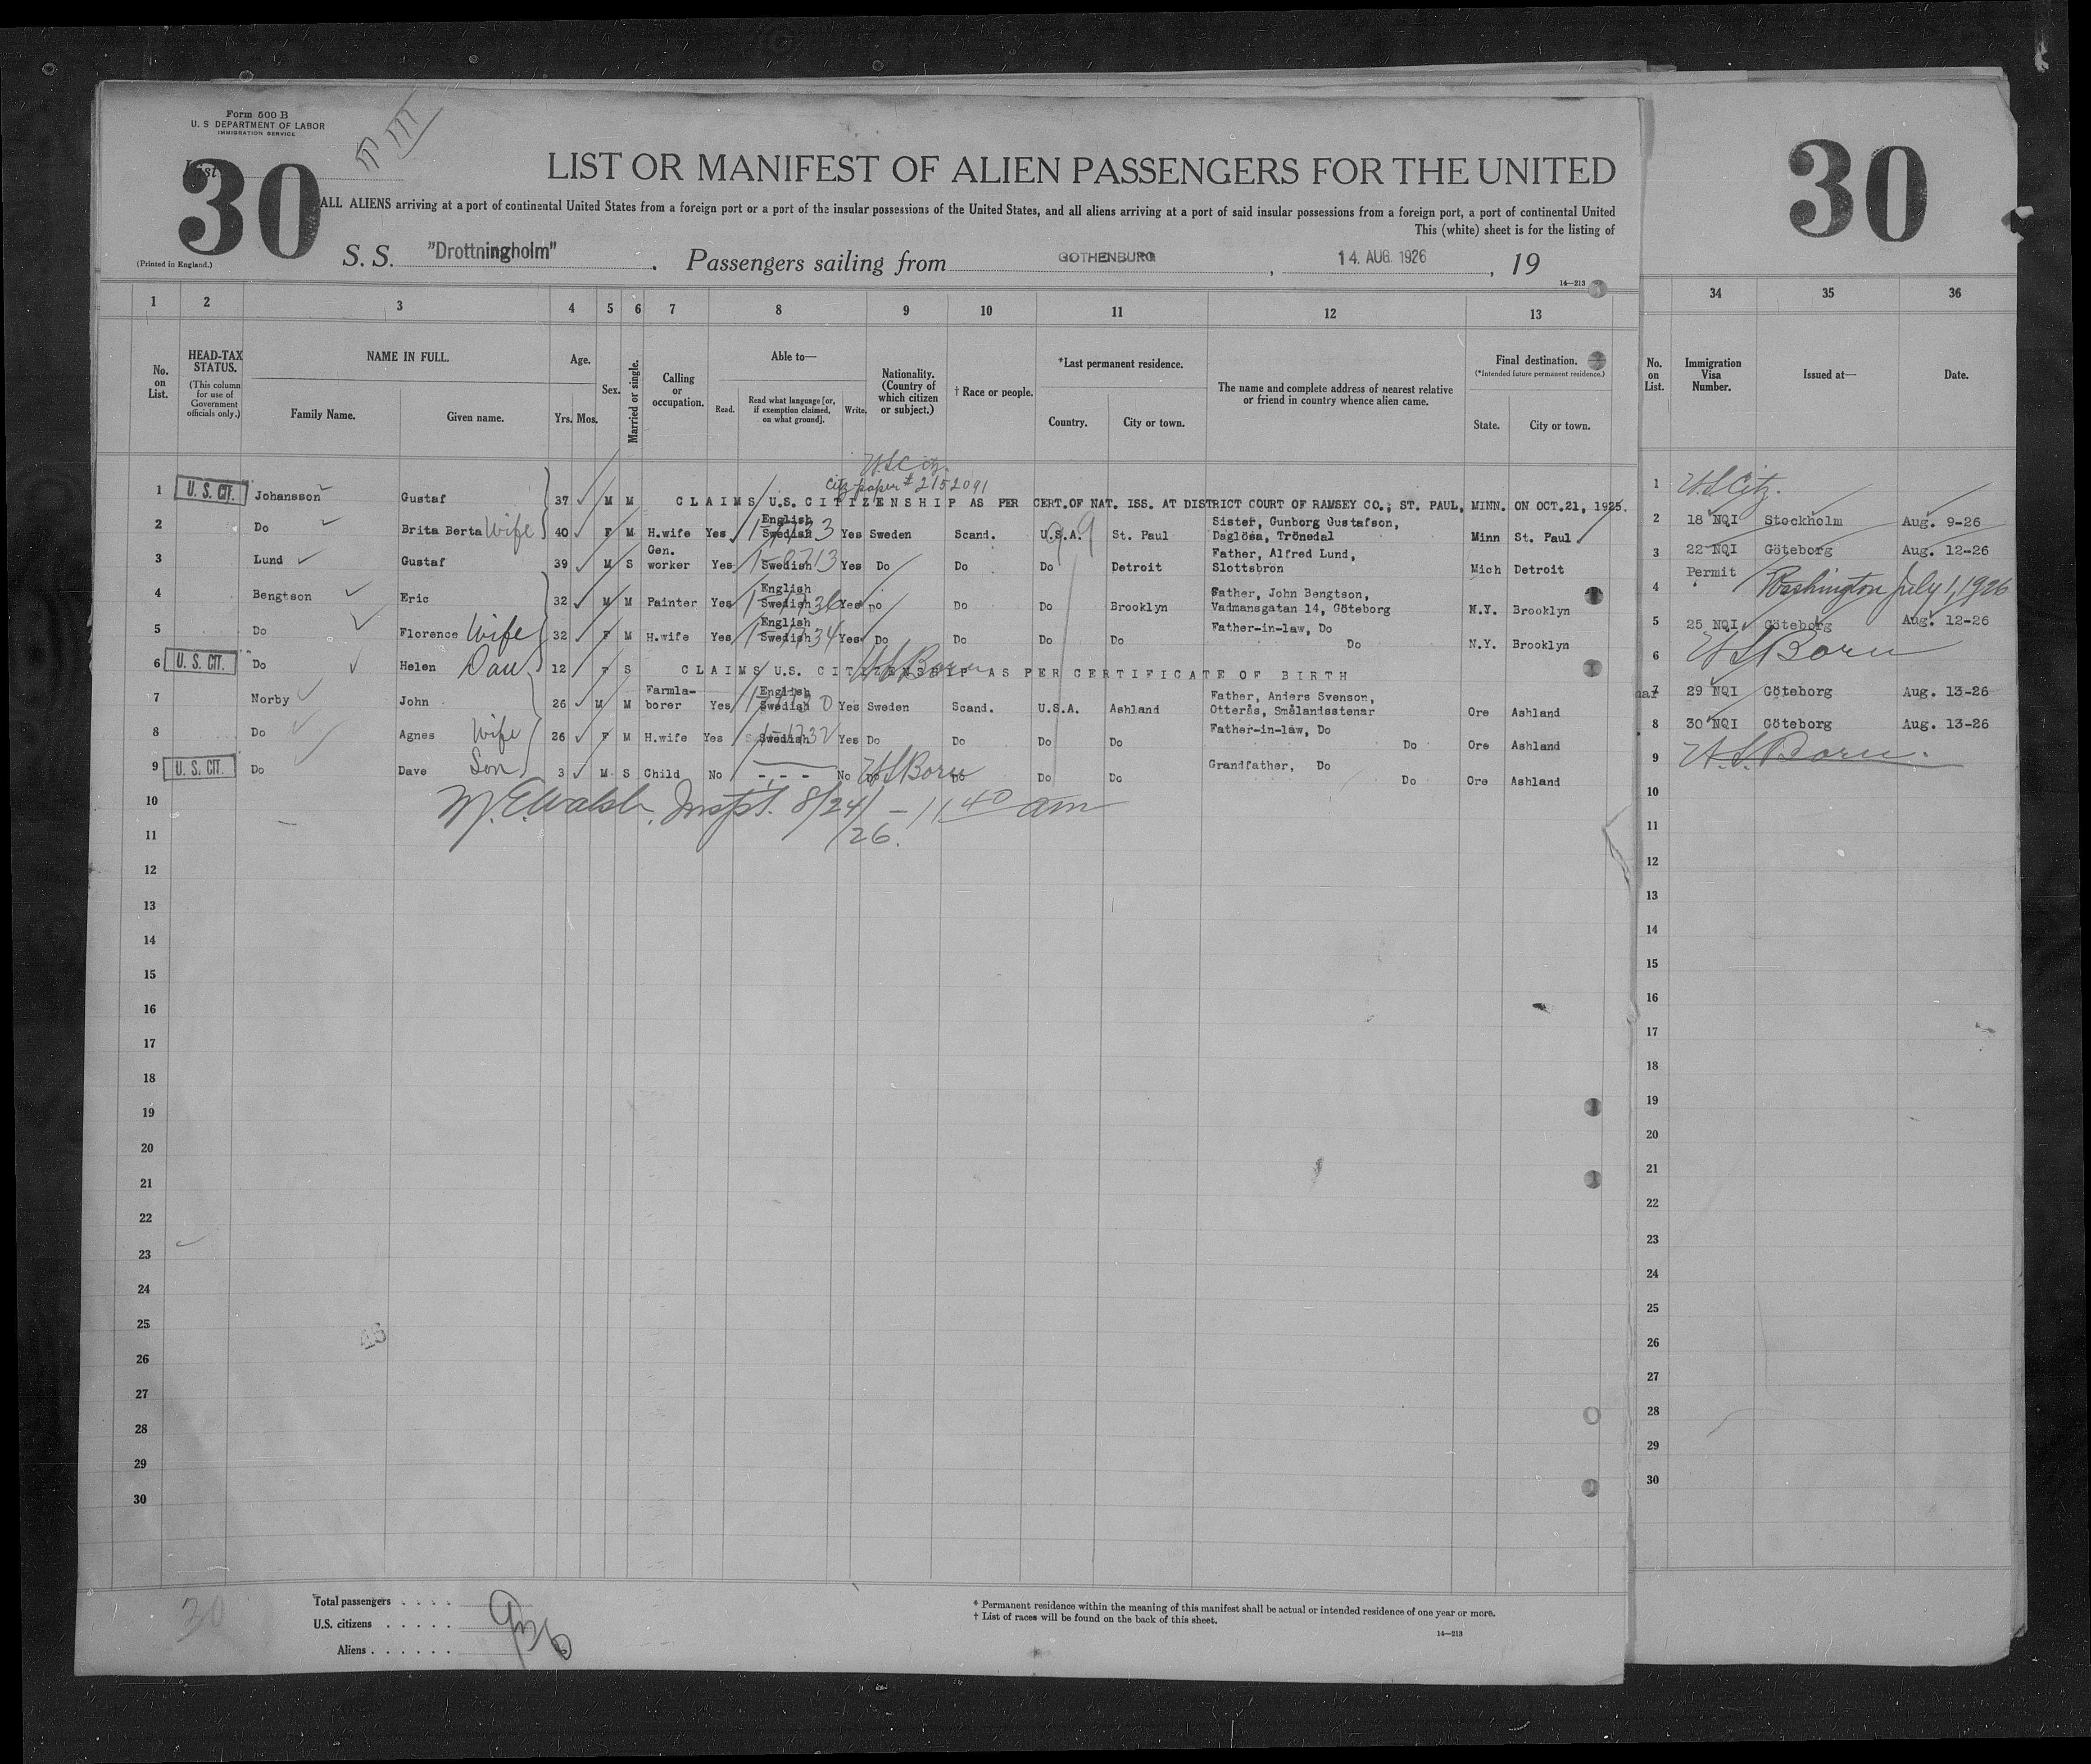 Form 500 B
U. S DEPARTMENT OF LABOR
IMMIGRATION SERVICE
List 30
30
LIST OR MANIFEST OF ALIEN PASSENGERS FOR THE UNITED
ALL ALIENS arriving at a port of continental United States from a foreign port or a port of the insular possessions of the United States, and all aliens arriving at a port of said insular possessions from a foreign port, a port of continental United
This (white) sheet is for the listing of
(Printed in England.)
S. S. "Drottningholm" . Passengers sailing from GOTHENBURG , 14. AUG. 1926 , 19
14—213
1 2 3 4 5 6 7 8 9 10 11 12 13 34 35 36
No. on List.
HEAD-TAX STATUS.
(This column for use of Government officials only.)
NAME IN FULL.
Family Name. Given name.
Age.
Yrs. Mos.
Sex.
Married or single.
Calling or occupation.
Able to—
Read. Read what language [or, if exemption claimed, on what ground]. Write.
Nationality. (Country of which citizen or subject.)
† Race or people.
*Last permanent residence.
Country. City or town.
The name and complete address of nearest relative or friend in country whence alien came.
Final destination.
(*Intended future permanent residence.)
State. City or town.
No. on List.
Immigration Visa Number.
Issued at—
Date.
U.S. Citz.
Citz paper # 2152091
1 U. S. CIT. Johansson Gustaf 37 M M CLAIMS U.S. CITIZENSHIP AS PER CERT.OF NAT. ISS. AT DISTRICT COURT OF RAMSEY CO., ST. PAUL, MINN. ON OCT.21, 1925. 1 U.S Citz.
2 Do Brita Berta Wife 40 F M H.wife Yes English Swedish Yes Sweden Scand. U.S.A. St. Paul Sister, Gunborg Gustafson, Dsglösa, Trönedal Minn St. Paul 2 18 NQI Stockholm Aug. 9-26
3 Lund Gustaf 39 M S Gen. worker Yes Swedish Yes Do Do Do Detroit Father, Alfred Lund, Slottsbron Mich Detroit 3 22 NQI Göteborg Aug. 12-26
4 Bengtson Eric 32 M M Painter Yes English Swedish Yes Do Do Do Brooklyn Father, John Bengtson, Vadmansgatan 14, Göteborg N.Y. Brooklyn 4 Permit Washington July 1, 1926
5 Do Florence Wife 32 F M H.wife Yes English Swedish Yes Do Do Do Do Father-in-law, Do Do N.Y. Brooklyn 5 25 NQI Göteborg Aug. 12-26
6 U. S. CIT. Do Helen Dau 12 F S CLAIMS U.S. CITIZENSHIP AS PER CERTIFICATE OF BIRTH US Born 6 US Born
7 Norby John 26 M M Farmlaborer Yes English Swedish Yes Sweden Scand. U.S.A. Ashland Father, Anders Svenson, Otterås, Smålandsstenar Ore Ashland 7 29 NQI Göteborg Aug. 13-26
8 Do Agnes Wife 26 F M H.wife Yes Swedish Yes Do Do Do Do Father-in-law, Do Do Ore Ashland 8 30 NQI Göteborg Aug. 13-26
9 U. S. CIT. Do Dave Son 3 M S Child No - - - No Do US Born Do Do Do Grandfather, Do Do Ore Ashland 9 U.S. Born.
10 M.E. Walsh, Inspt. 8/24/26. - 11 40 am 10
11 11
12 12
13 13
14 14
15 15
16 16
17 17
18 18
19 19
20 20
21 21
22 22
23 23
24 24
25 25
26 26
27 27
28 28
29 29
30 30
46
30
Total passengers . . . . 9
U.S. citizens . . . . . 3
Aliens . . . . . . 6
* Permanent residence within the meaning of this manifest shall be actual or intended residence of one year or more.
† List of races will be found on the back of this sheet.
14—213